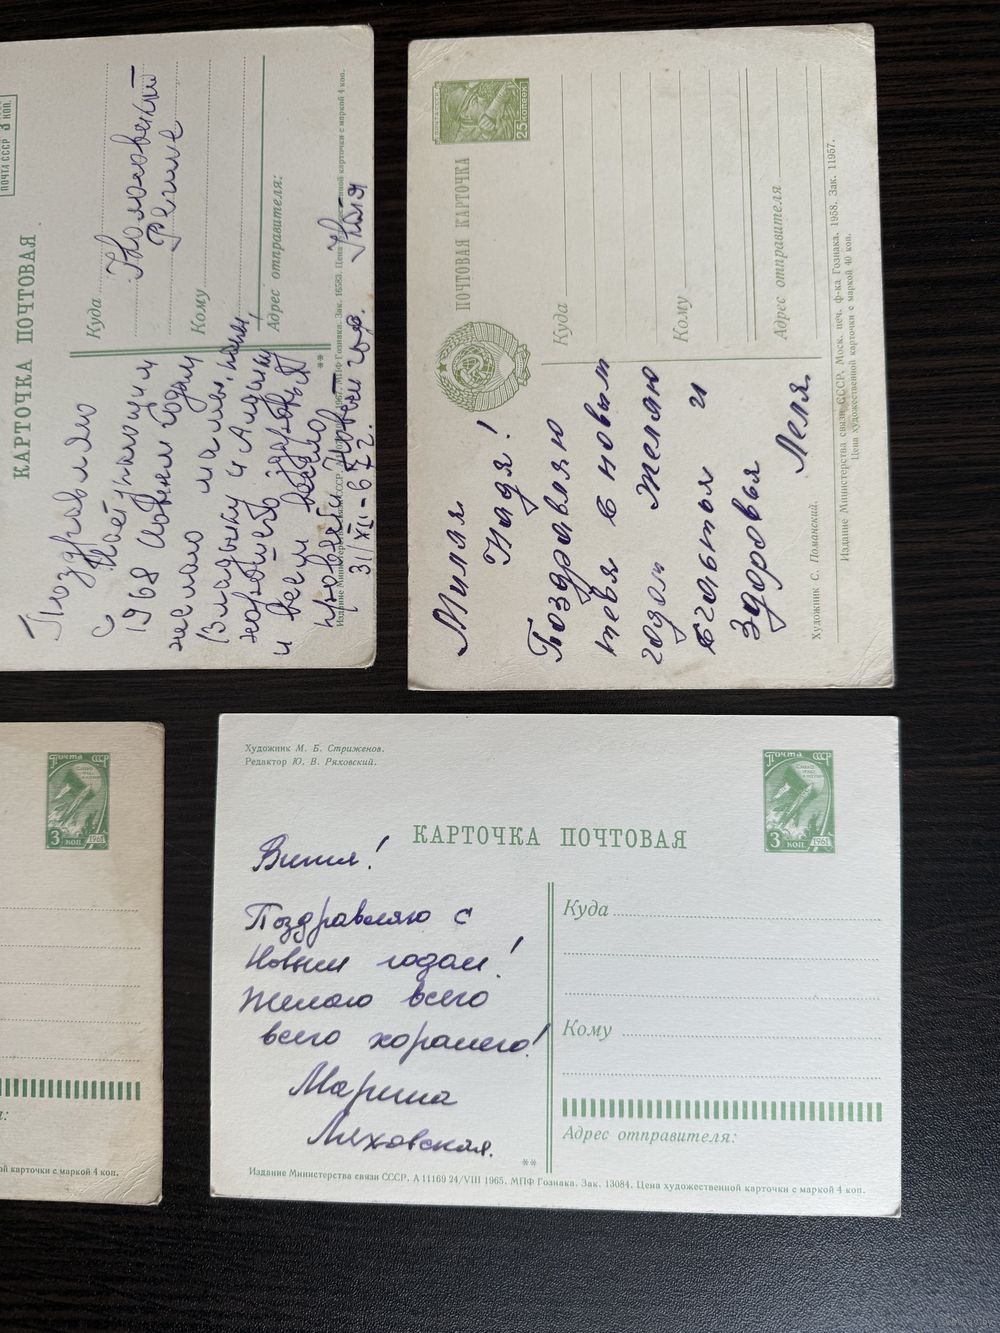 ПОЧТА СССР
3 КОП.
КАРТОЧКА ПОЧТОВАЯ
Куда
Кому
Адрес отправителя:
Поздравляю
с Наступающим
1968 Новым годом
желаю мамы, папы,
Владику и Лидии
хорошего здоровья
и всем весело
провести Новый год.
31/XII-67 г.
**
МПФ Гознака. Зак. 16583.
карточки с маркой 4 коп.
25 КОПЕЕК
ПОЧТОВАЯ КАРТОЧКА
Куда
Кому
Адрес отправителя
Милая
Надя!
Боздравляю
тебя с новым
годом желаю
счастья и
здоровья
Леля.
Художник С. Поманский.
Издание Министерства связи СССР. Моск. печ. ф-ка Гознака. 1958. Зак. 11957.
Цена художественной карточки с маркой 40 коп.
Почта СССР
3 коп
1961
карточки с маркой 4 коп.
Художник М. Б. Стриженов.
Редактор Ю. В. Ряховский.
КАРТОЧКА ПОЧТОВАЯ
Почта СССР
3 коп
1961
Витя!
Поздравляю с
Новым годом!
Желаю всего
всего хорашего!
Марина
Ляховская.
Куда
Кому
Адрес отправителя:
**
Издание Министерства связи СССР. А 11169 24/VIII 1965. МПФ Гознака. Зак. 13084. Цена художественной карточки с маркой 4 коп.